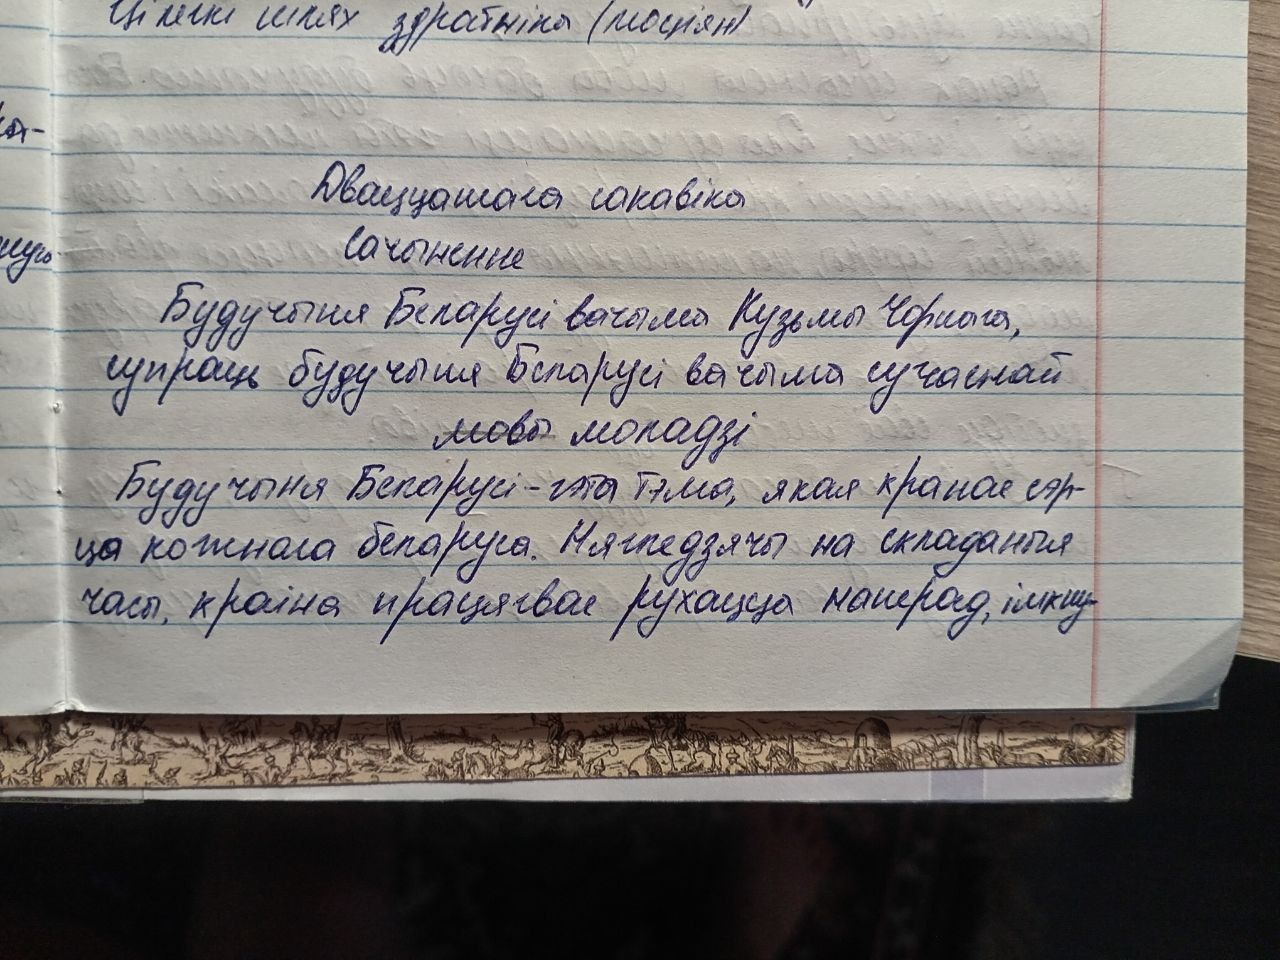 шлях здрадніка (маснян)
Дваццатага сакавіка
Сачыненне
Будучыня Беларусі вачыма Кузьмы Чорнага,
супраць будучыня Беларусі вачыма сучаснай
мовы моладзі
Будучыня Беларусі - гэта тэма, якая кранае сэр-
ца кожнага беларуса. Нягледзячы на складаныя
часы, краіна працягвае рухацца наперад, імкну-